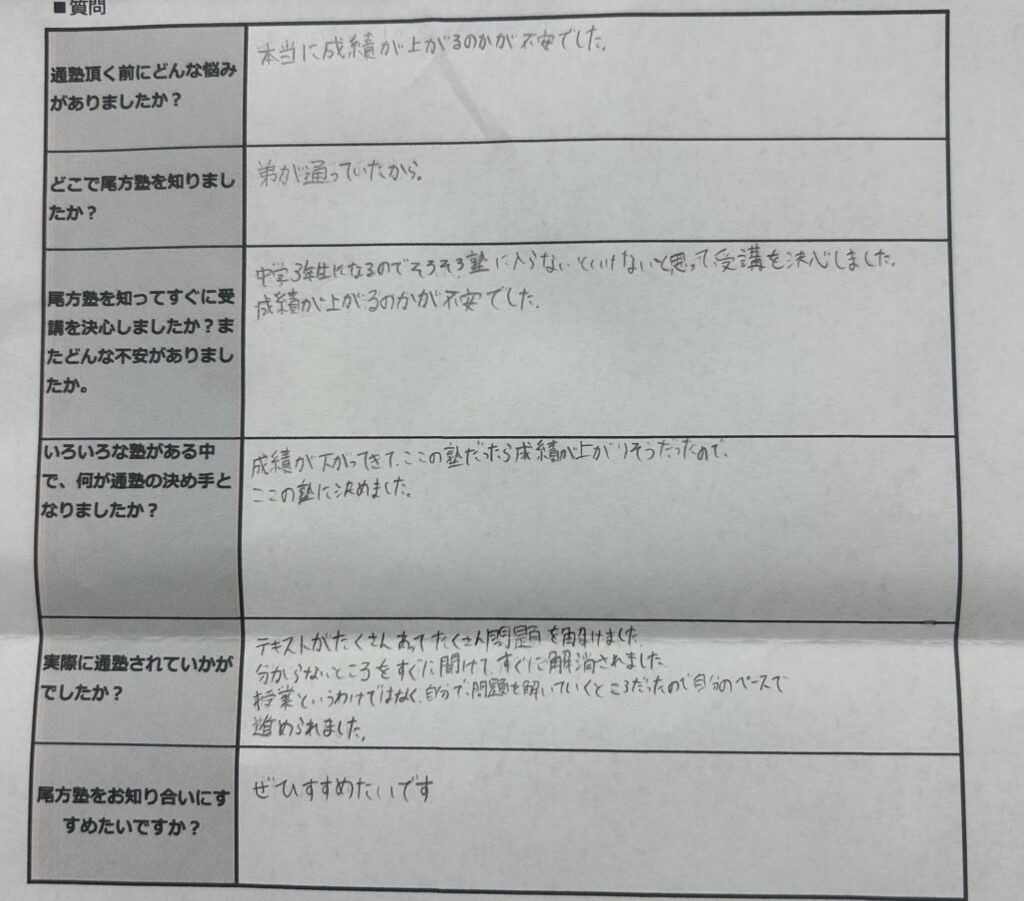 ■質問
通塾頂く前にどんな悩み
がありましたか？
本当に成績が上がるのかが不安でした。
どこで尾方塾を知りまし
たか？
弟が通っていたから。
尾方塾を知ってすぐに受
講を決心しましたか？ま
たどんな不安がありまし
たか。
中学3年生になるのでそろそろ塾に入らないといけないと思って受講を決心しました。
成績が上がるのかが不安でした。
いろいろな塾がある中
で、何が通塾の決め手と
なりましたか？
成績が下がってきて、ここの塾だったら成績が上がりそうだったので、
ここの塾に決めました。
実際に通塾されていかが
でしたか？
テキストがたくさんあってたくさん問題を解けました。
分からないところをすぐに聞けて、すぐに解消されました
授業というわけではなく、自分で、問題を解いていくところだったので自分のペースで
進められました。
尾方塾をお知り合いにす
すめたいですか？
ぜひすすめたいです